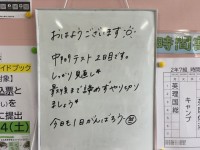 おはようございます
中間テスト2日目です。
しっかり見直し
最後まで諦めずやりきり
ましょう
今日も1日がんばろう
イドブック
対象】
込票と
いを
に提出
4(土)
時間
2年7組 時間
英理国総
キャンプ